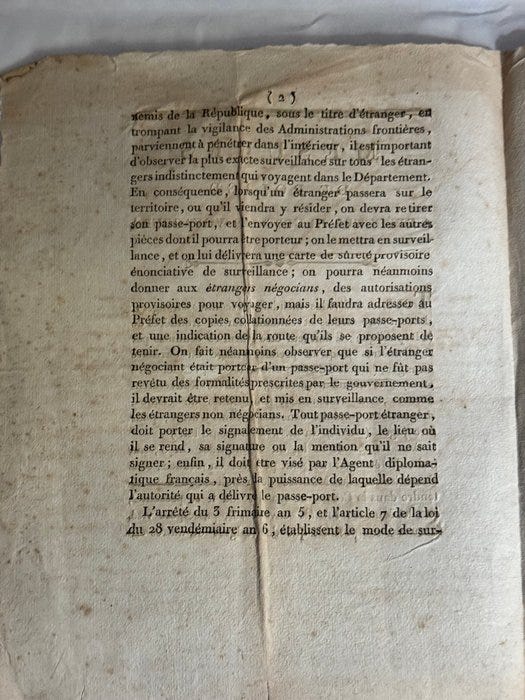 (2)
nemis de la République, sous le titre d'étranger, en
trompant la vigilance des Administrations frontières,
parviennent à pénétrer dans l'intérieur, il est important
d'observer la plus exacte surveillance sur tous les étran-
gers indistinctement qui voyagent dans le Département.
En conséquence, lorsqu'un étranger passera sur le
territoire, ou qu'il viendra y résider, on devra retirer
son passe-port, et l'envoyer au Préfet avec les autres
pièces dont il pourra être porteur; on le mettra en surveil-
lance, et on lui délivrera une carte de sûreté provisoire
énonciative de surveillance; on pourra néanmoins
donner aux étrangers négocians, des autorisations
provisoires pour voyager, mais il faudra adresser au
Préfet des copies collationnées de leurs passe-ports,
et une indication de la route qu'ils se proposent de
tenir. On fait néanmoins observer que si l'étranger
négociant était porteur d'un passe-port qui ne fût pas
revêtu des formalités prescrites par le gouvernement,
il devrait être retenu et mis en surveillance comme
les étrangers non négocians. Tout passe-port étranger,
doit porter le signalement de l'individu, le lieu où
il se rend, sa signature ou la mention qu'il ne sait
signer; enfin, il doit être visé par l'Agent diploma-
tique français, près la puissance de laquelle dépend
l'autorité qui a délivré le passe-port.
L'arrêté du 3 frimaire an 5, et l'article 7 de la loi
du 28 vendémiaire an 6, établissent le mode de sur-